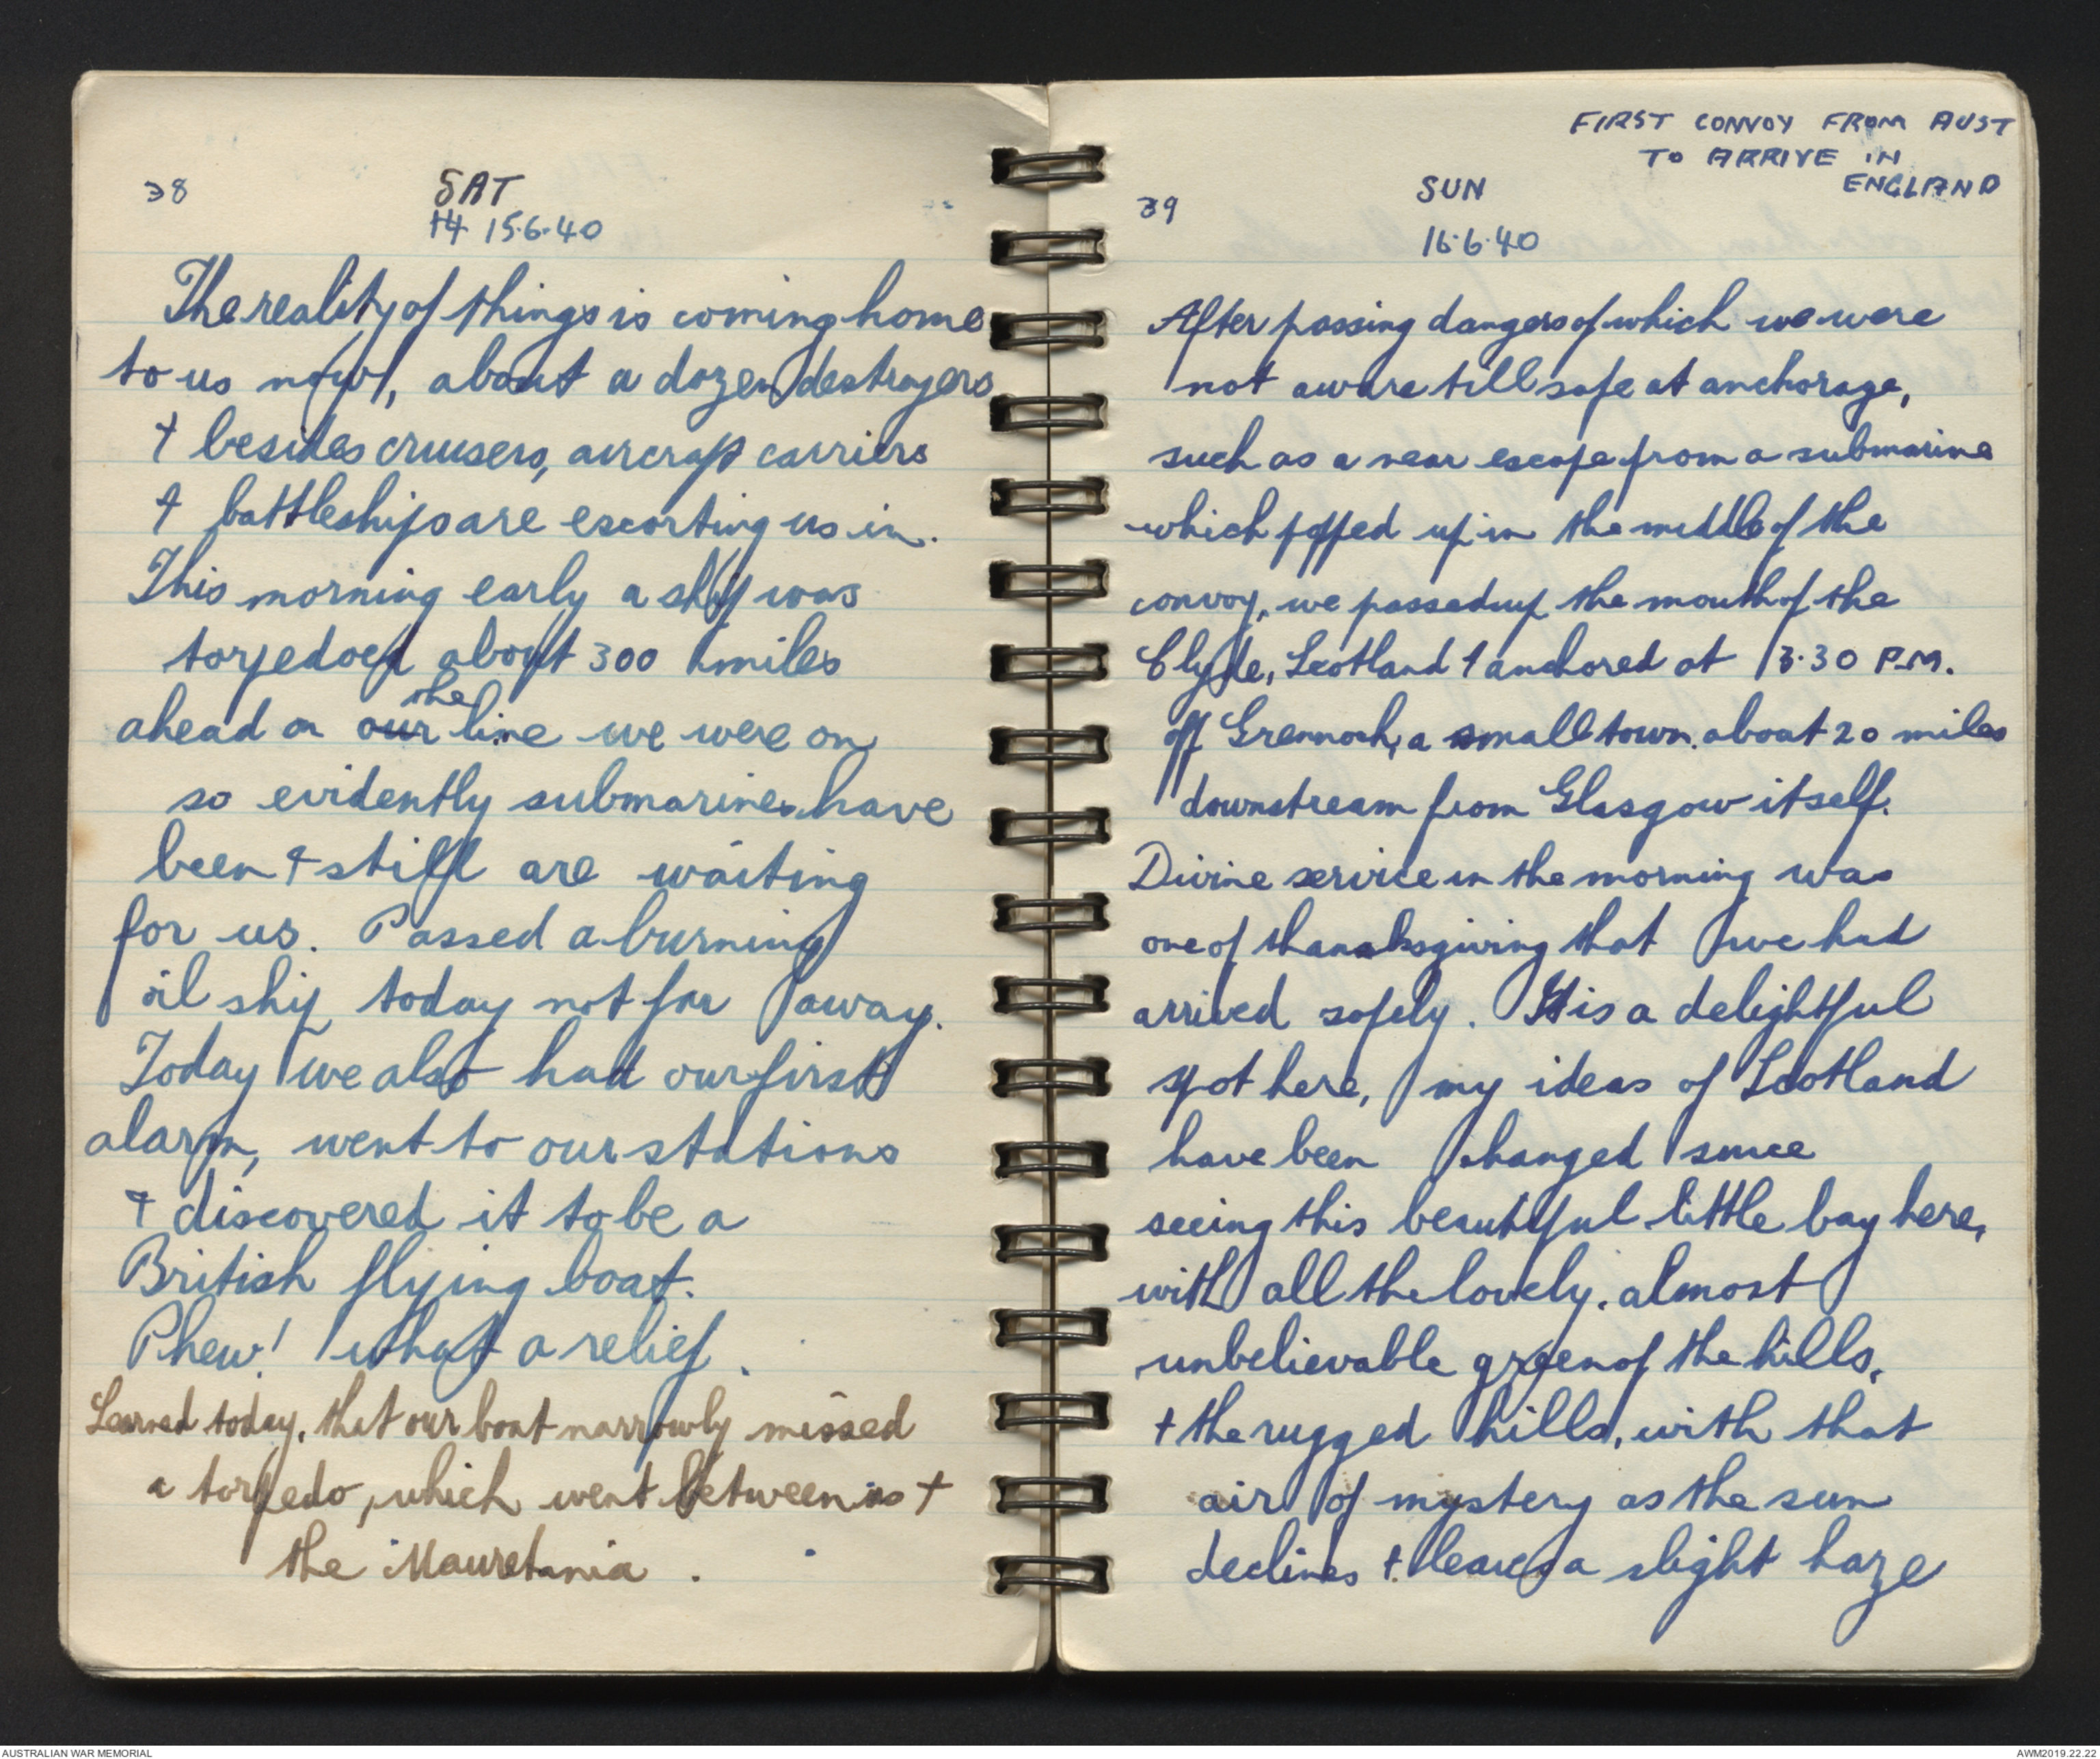 38
SAT
14 15.6.40
The reality of things is coming home
to us now, about a dozen destroyers
+ besides cruisers, aircraft carriers
+ battleships are escorting us in.
This morning early a ship was
torpedoed about 300 miles
the
ahead on our line we were on
so evidently submarines have
been + still are waiting
for us. Passed a burning
oil ship today not far away.
Today we also had our first
alarm, went to our stations
+ discovered it to be a
British flying boat.
Phew! what a relief.
Learned today, that our boat narrowly missed
a torpedo, which went between us +
the Mauretania.
FIRST CONVOY FROM AUST
TO ARRIVE IN
ENGLAND
39
SUN
16.6.40
After passing dangers of which we were
not aware till safe at anchorage,
such as a near escape from a submarine
which popped up in the middle of the
convoy, we passed up the mouth of the
Clyde, Scotland + anchored at 3.30 P.M.
off Grennoch, a small town about 20 miles
downstream from Glasgow itself.
Divine service in the morning was
one of thanksgiving that we had
arrived safely. It is a delightful
spot here, my ideas of Scotland
have been changed since
seeing this beautiful little bay here,
with all the lovely, almost
unbelievable green of the hills,
+ the rugged hills, with that
air of mystery as the sun
declines + leaves a slight haze
AUSTRALIAN WAR MEMORIAL
AWM2019.22.22